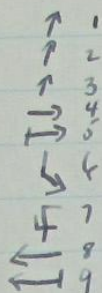 ↑ 1
↑ 2
↑ 3
→ 4
↦ 5
↘ 6
7
← 8
↤ 9